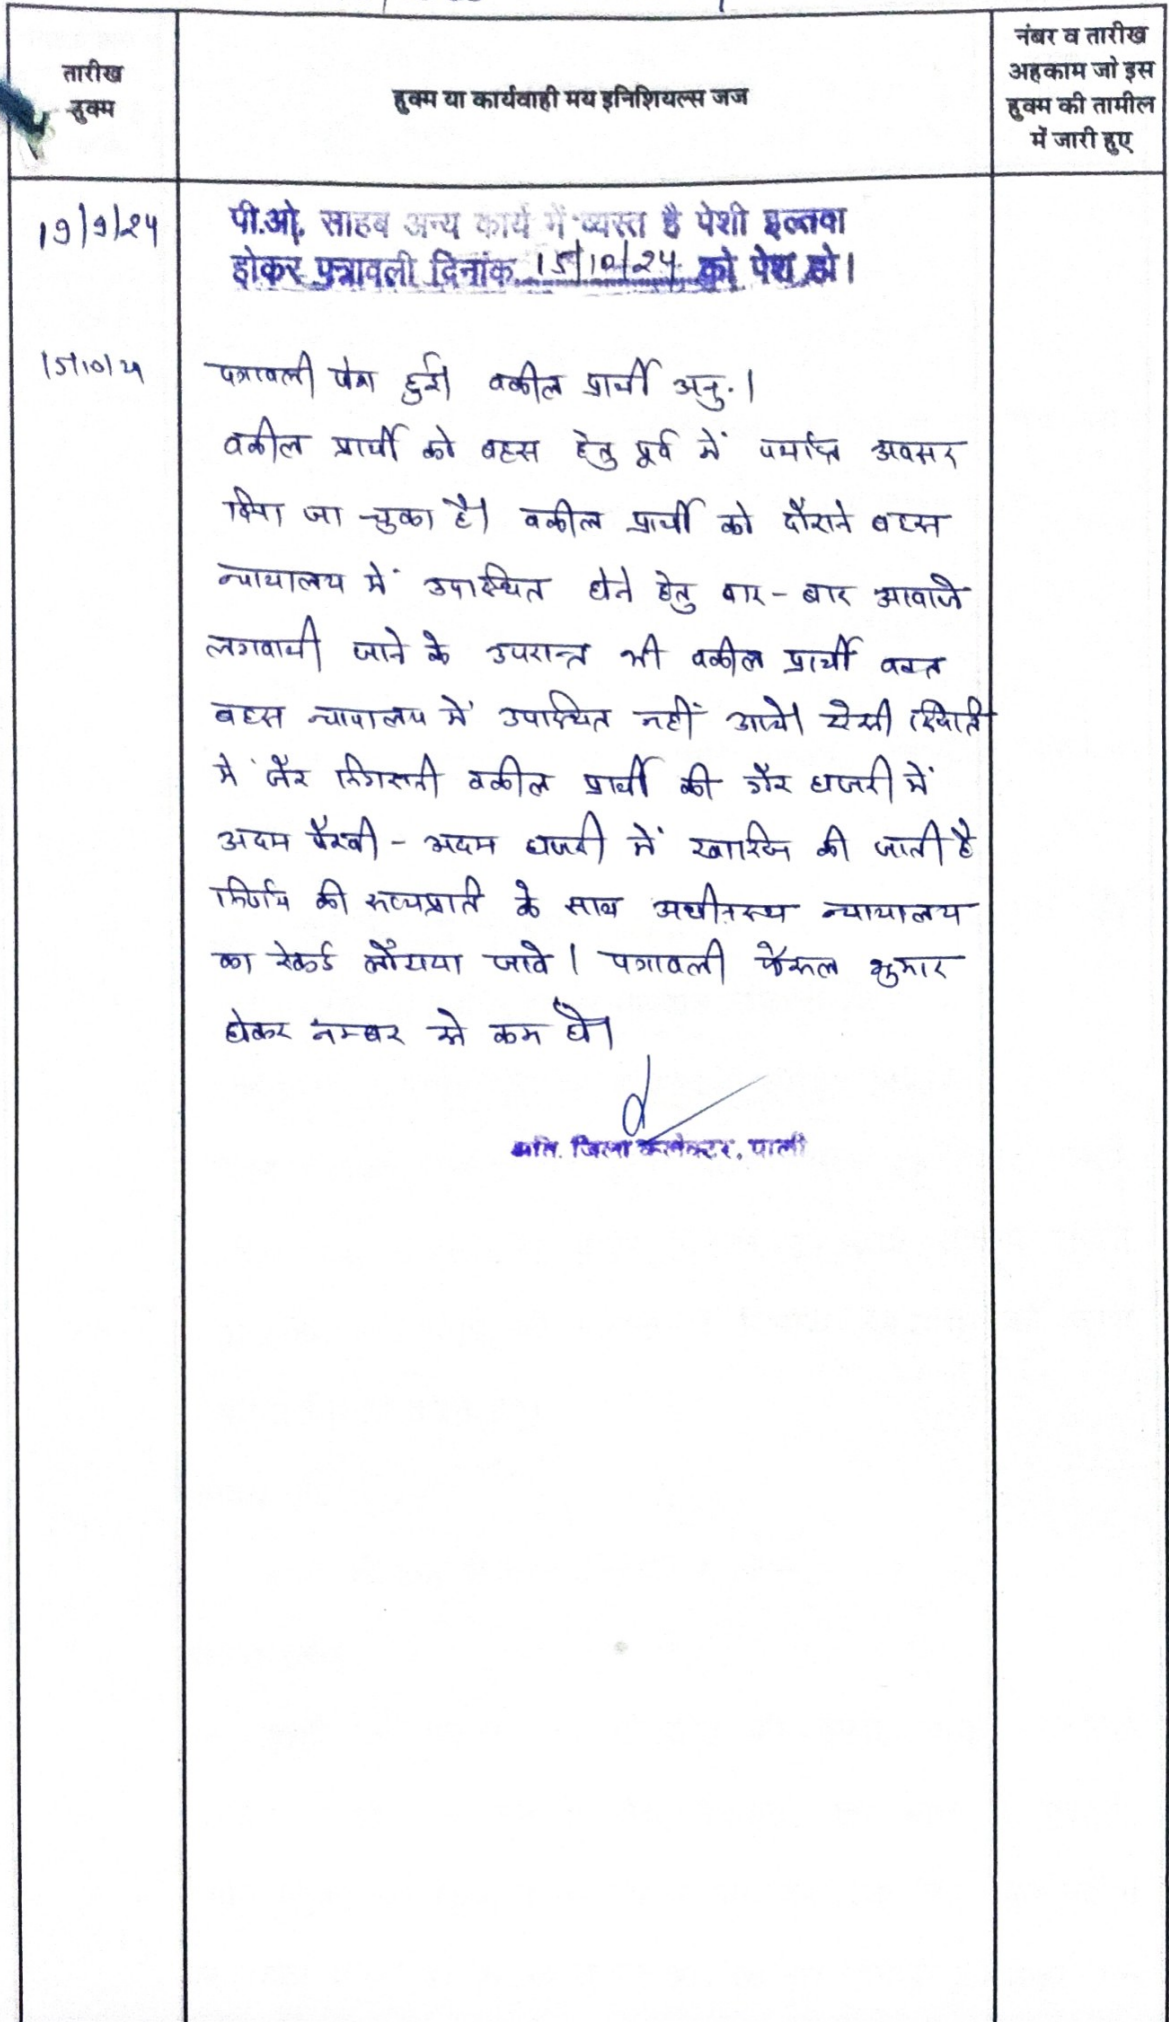 तारीख
हुक्म
हुक्म या कार्यवाही मय इनिशियल्स जज
नंबर व तारीख
अहकाम जो इस
हुक्म की तामील
में जारी हुए
19/9/24
पी.ओ. साहब अन्य कार्य में व्यस्त है पेशी इल्तवा
होकर पत्रावली दिनांक 15/10/24 को पेश हो।
15/10/24
पत्रावली पेश हुई। वकील प्रार्थी अनु.।
वकील प्रार्थी को बहस हेतु पूर्व में पर्याप्त अवसर
दिया जा चुका है। वकील प्रार्थी को दौराने बहस
न्यायालय में उपस्थित होने हेतु बार-बार आवाजे
लगवायी जाने के उपरान्त भी वकील प्रार्थी वक्त
बहस न्यायालय में उपस्थित नहीं आये। ऐसी स्थिति
में जैर निगरानी वकील प्रार्थी की गैर हाजरी में
अदम पैरवी - अदम हाजरी में खारिज की जाती है
निर्णय की सत्यप्रति के साथ अधीनस्थ न्यायालय
का रेकर्ड लौटाया जावे। पत्रावली फैसल शुमार
होकर नम्बर से कम हो।
अति. जिला कलेक्टर, पाली